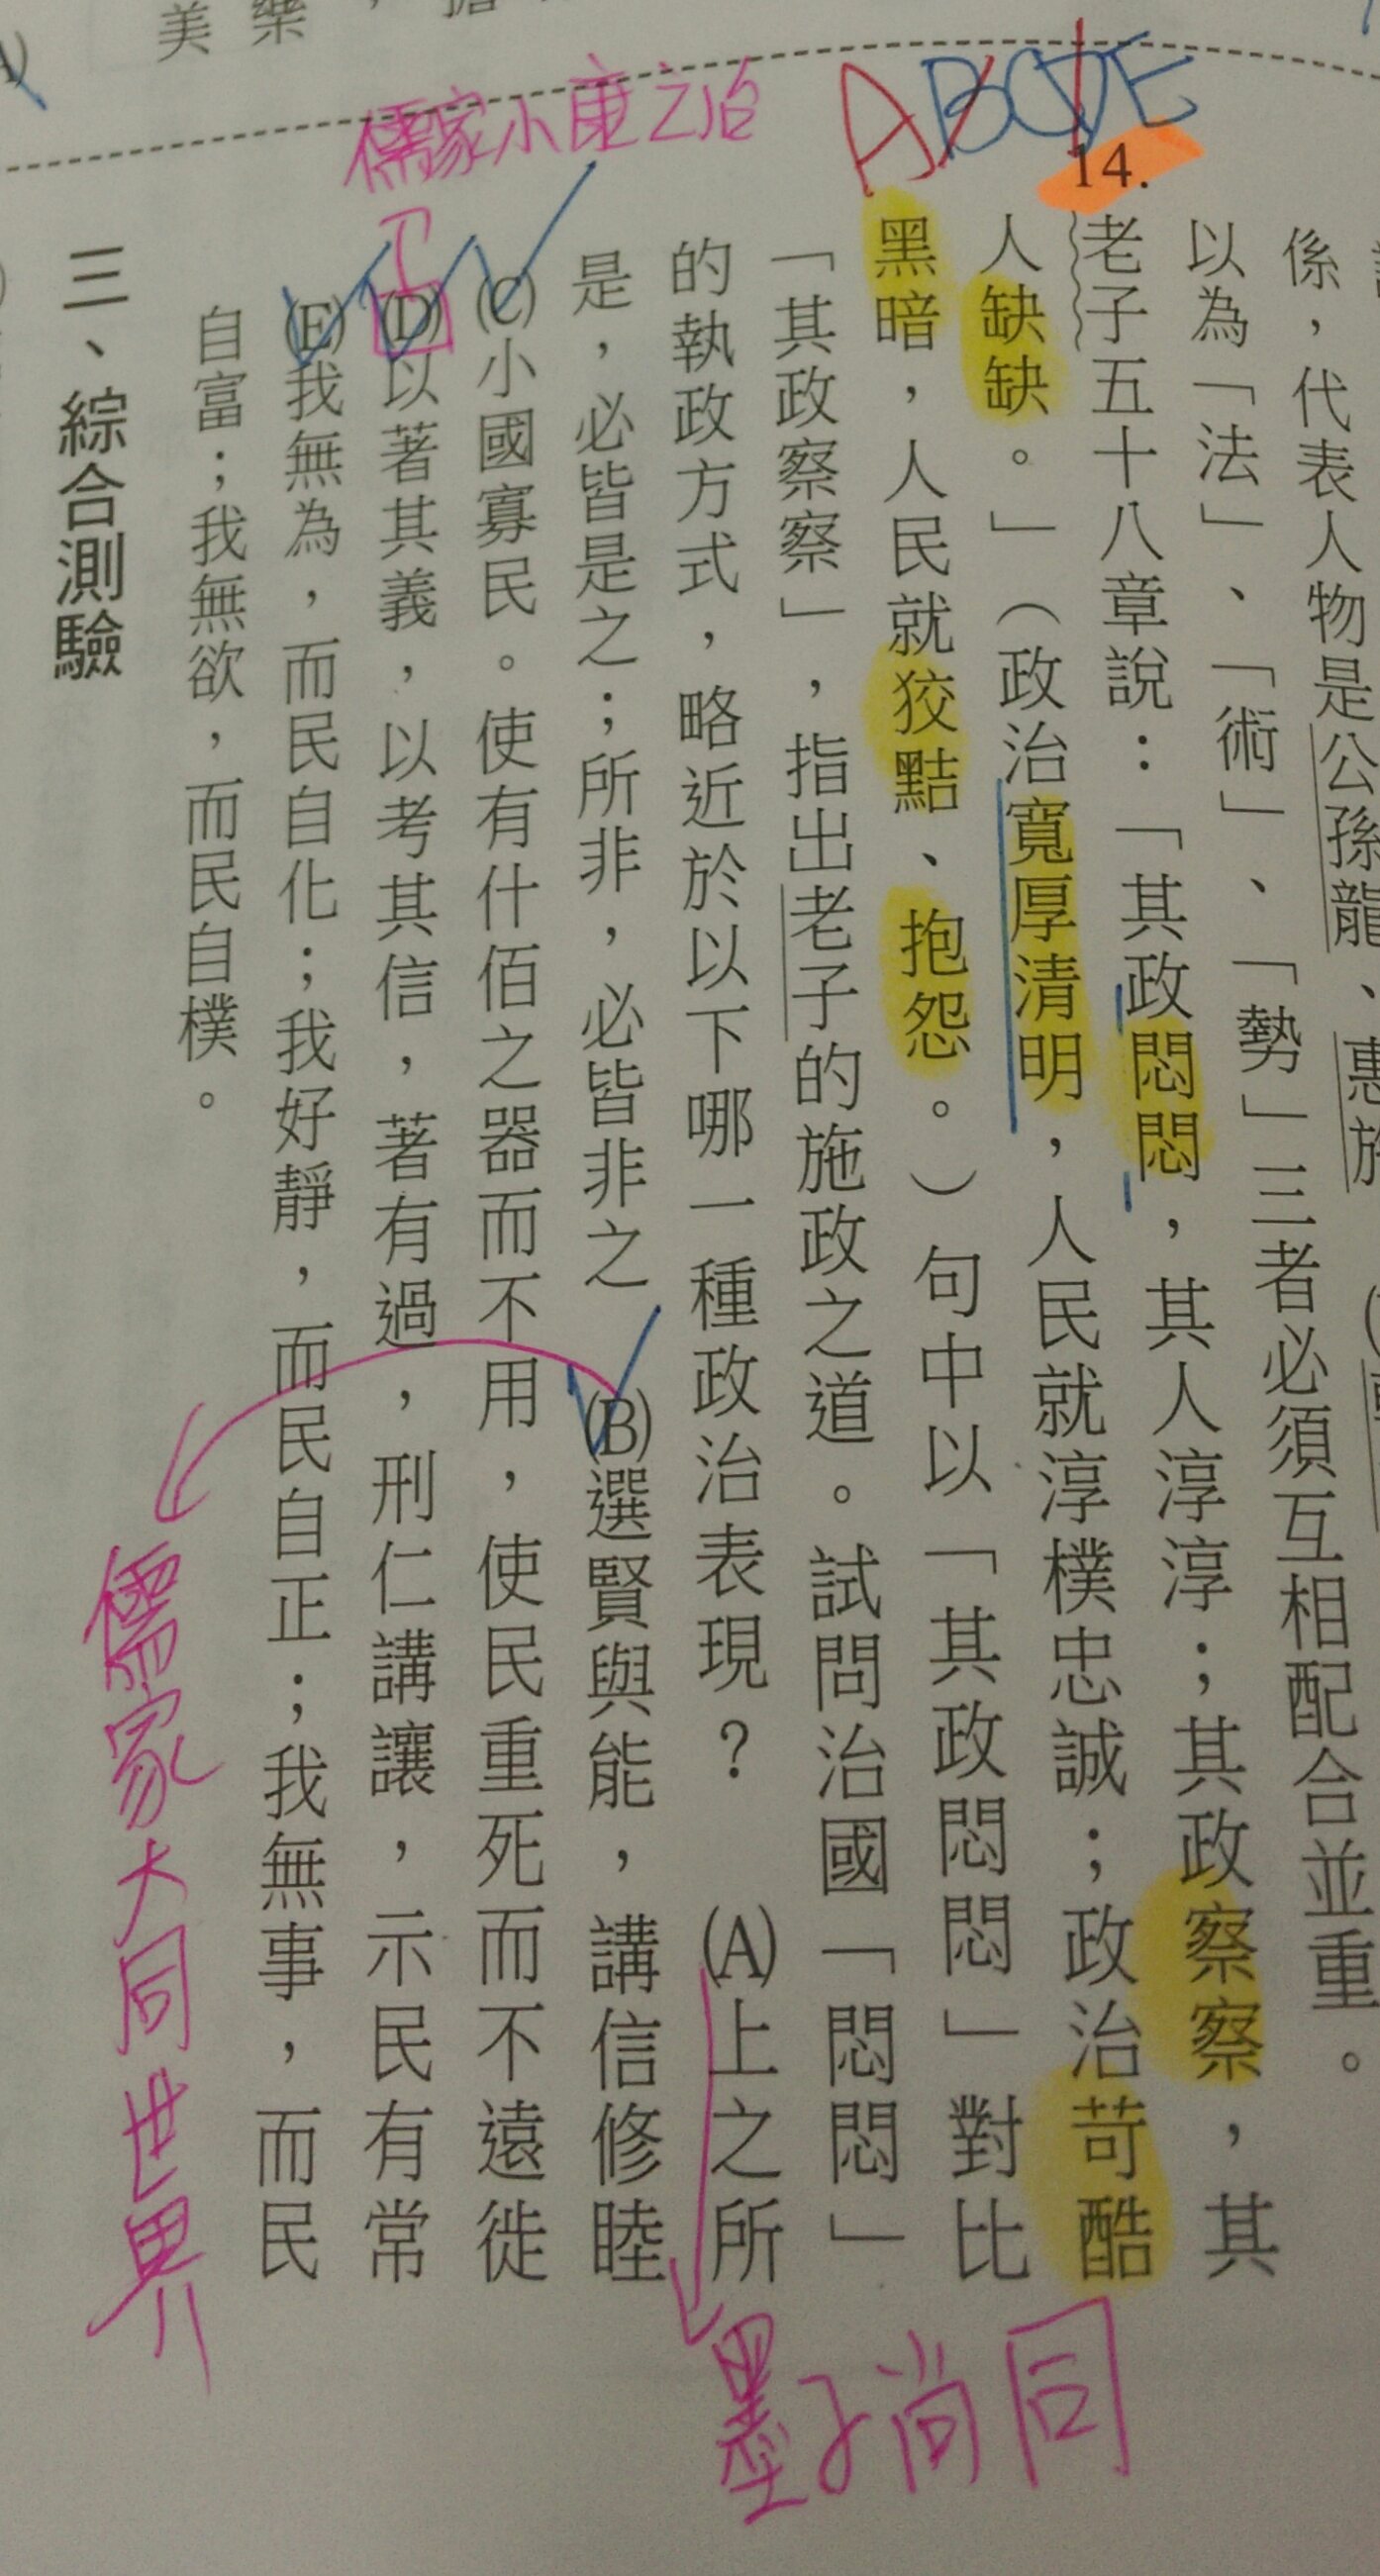 係，代表人物是公孫龍、惠施
以為「法」、「術」、「勢」三者必須互相配合並重。
ABCDE
14.
老子五十八章說：「其政悶悶，其人淳淳；其政察察，其
人缺缺。」（政治寬厚清明，人民就淳樸忠誠；政治苛酷
黑暗，人民就狡黠、抱怨。）句中以「其政悶悶」對比
「其政察察」，指出老子的施政之道。試問治國「悶悶」
的執政方式，略近於以下哪一種政治表現？ (A)上之所
是，必皆是之；所非，必皆非之 (B)選賢與能，講信修睦
(C)小國寡民。使有什佰之器而不用，使民重死而不遠徙
(D)以著其義，以考其信，著有過，刑仁講讓，示民有常
(E)我無為，而民自化；我好靜，而民自正；我無事，而民
自富；我無欲，而民自樸。
墨子尚同
儒家小康之治
儒家大同世界
三、綜合測驗
樂
美